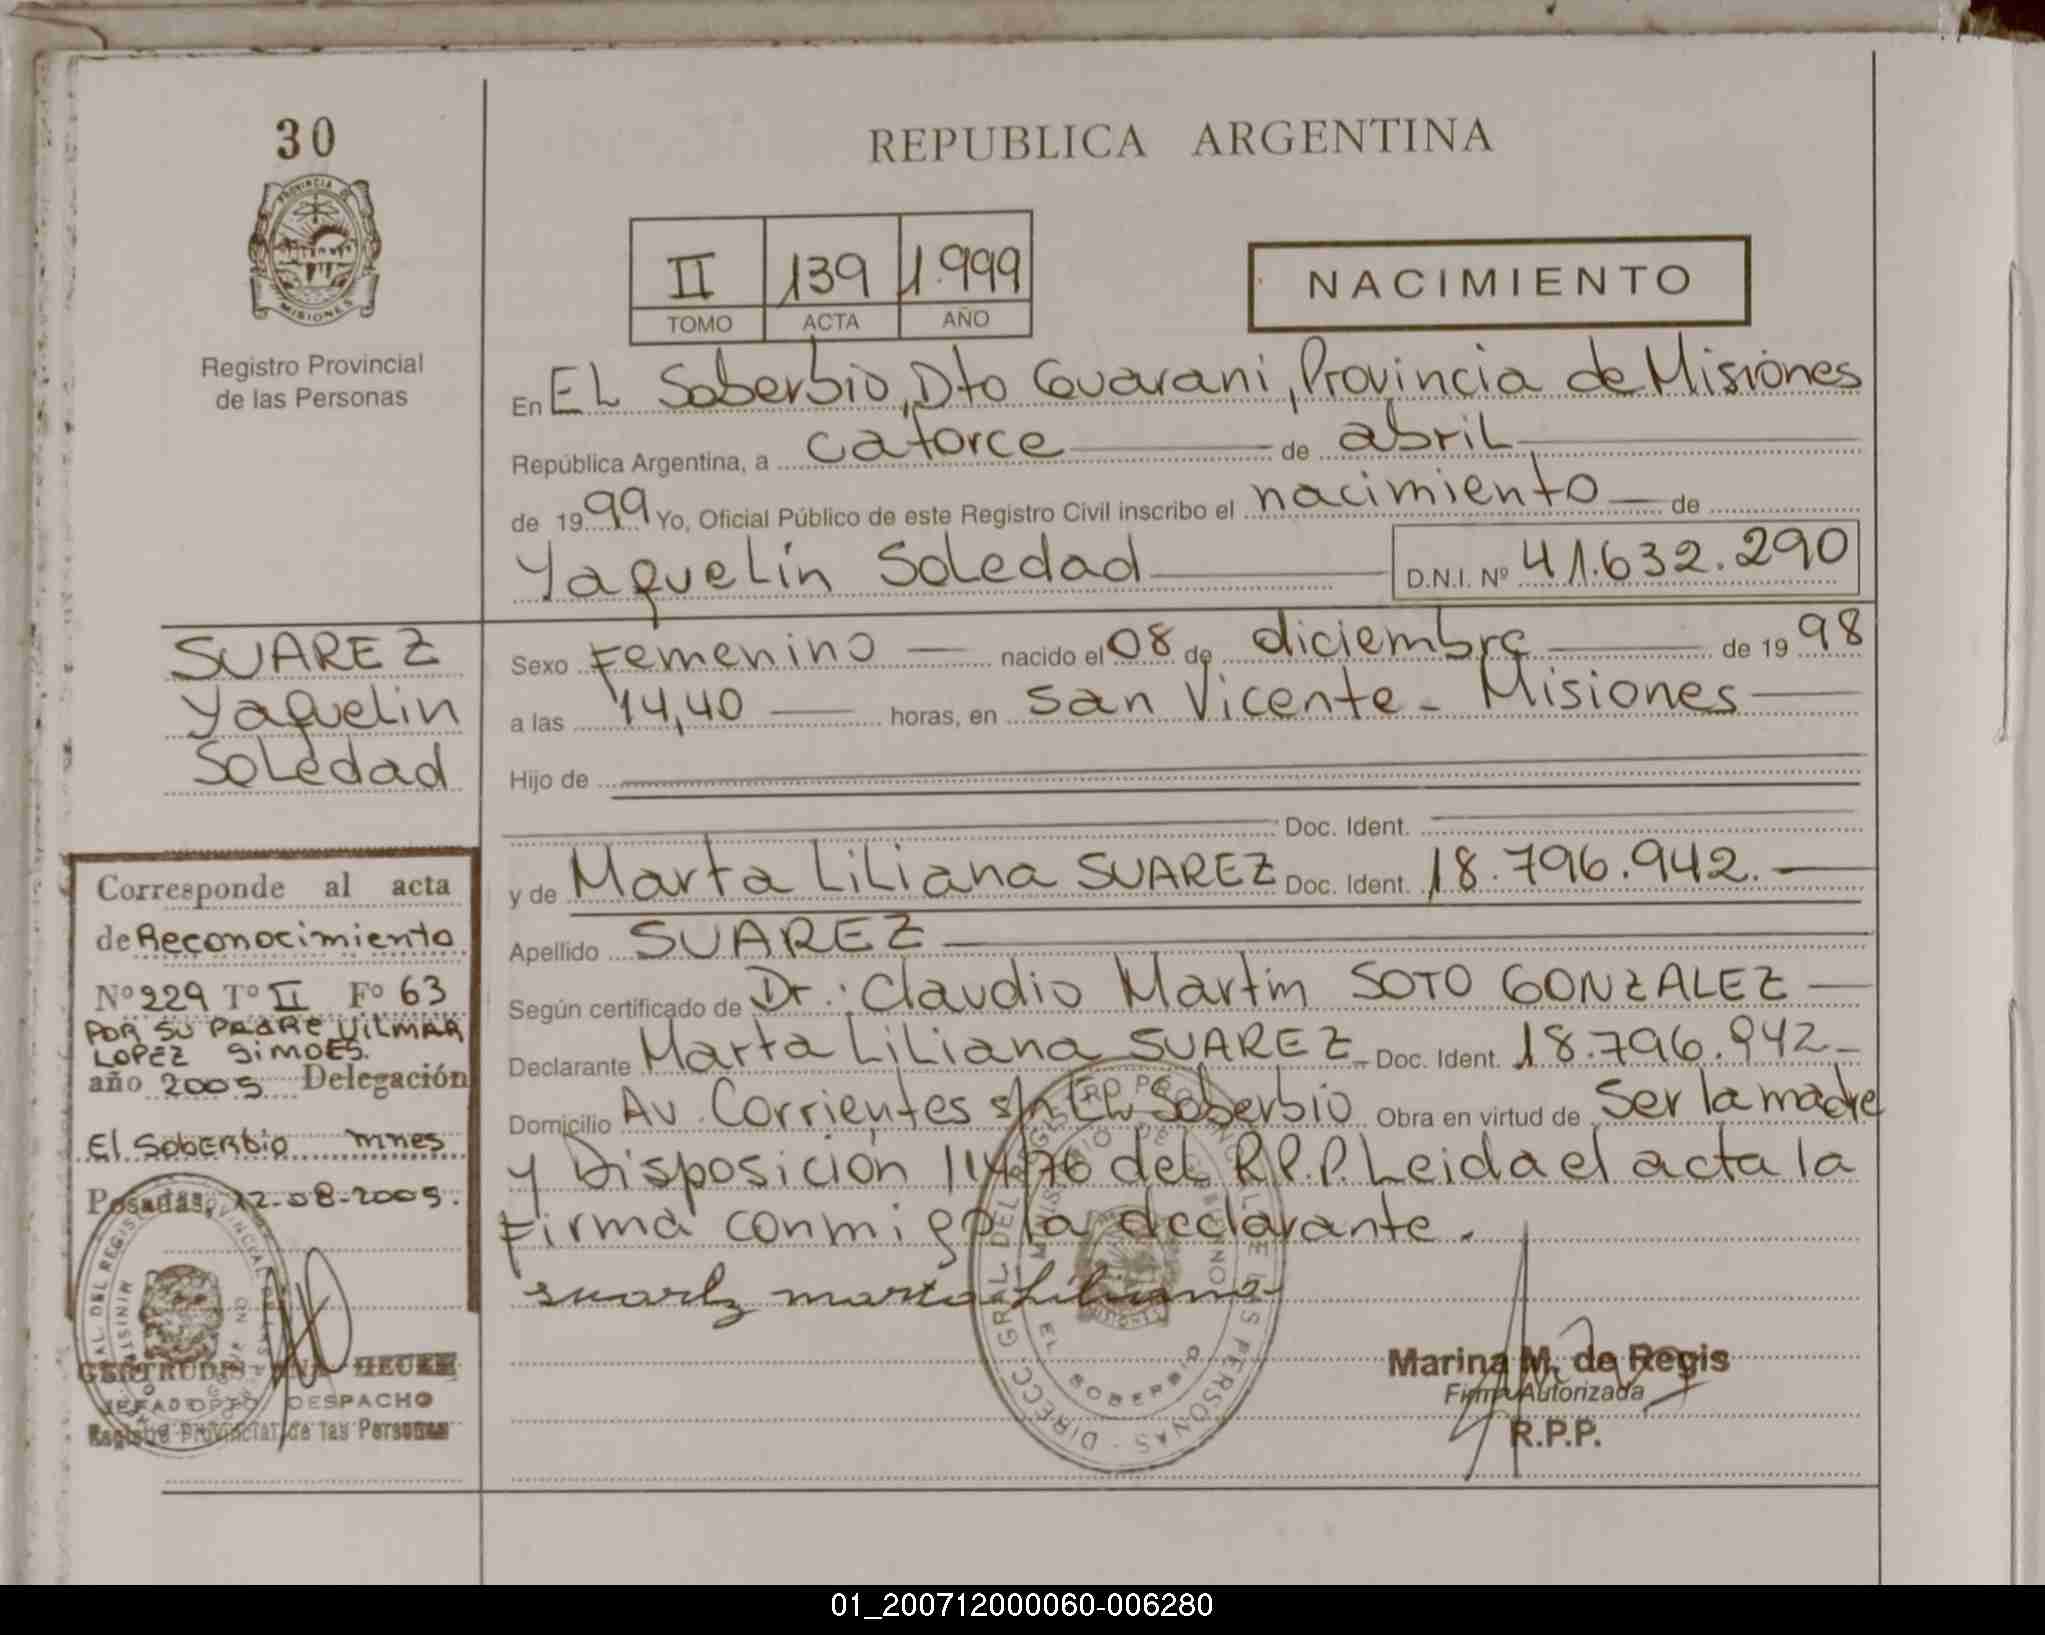 30
PROVINCIA DE
MISIONES
Registro Provincial
de las Personas
REPUBLICA ARGENTINA
II 139 1.999
TOMO ACTA AÑO
NACIMIENTO
En EL Soberbio, Dto Guarani, Provincia de Misiones
República Argentina, a catorce de abril
de 1999 Yo, Oficial Público de este Registro Civil inscribo el nacimiento de
Yaquelin Soledad D.N.I. Nº 41.632.290
SUAREZ
Yaquelin
Soledad
Sexo Femenino nacido el 08 de diciembre de 1998
a las 14,40 horas, en San Vicente - Misiones
Hijo de
Doc. Ident.
y de Marta Liliana SUAREZ Doc. Ident. 18.796.942.
Apellido SUAREZ
Según certificado de Dr.: Claudio Martin SOTO GONZALEZ
Declarante Marta Liliana SUAREZ Doc. Ident. 18.796.942
Domicilio Av. Corrientes s/n El Soberbio Obra en virtud de Ser la madre
y Disposición 114/76 del R.P.P. Leida el acta la
Firma conmigo la declarante.
suarez marta liliana
Marina M. de Regis
Firma Autorizada
R.P.P.
Corresponde al acta
de Reconocimiento
Nº 229 Tº II Fº 63
POR SU PADRE VILMAR
LOPEZ SIMOES.
año 2005 Delegación
El SobERbio mnes
Posadas, 12-08-2005.
GERTRUDIS
JEFA DPTO DESPACHO
Registro Provincial de las Personas
DIRECC. GRAL DEL REGISTRO PROVINCIAL DE LAS PERSONAS
MINISTERIO DE GOBIERNO
MISIONES
EL SOBERBIO
01_200712000060-006280